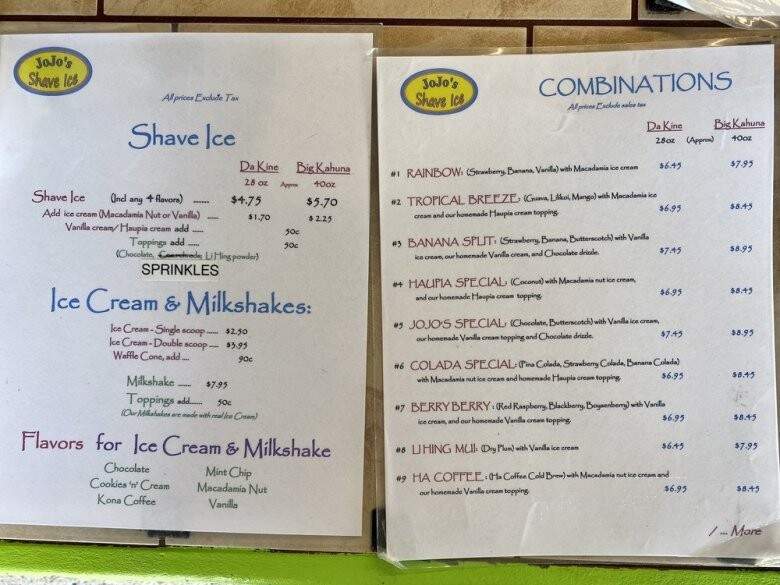 JoJo's
Shave Ice
All prices Exclude Tax
Shave Ice
Da Kine Big Kahuna
28 oz Approx 40oz
Shave Ice (Incl any 4 flavors) ...... $4.75 $5.70
Add ice cream (Macadamia Nut or Vanilla) ..... $1.70 $2.25
Vanilla cream/ Haupia cream add ..... 50c
Toppings add ..... 50c
(Chocolate, Li Hing powder)
SPRINKLES
Ice Cream & Milkshakes:
Ice Cream - Single scoop ..... $2.50
Ice Cream - Double scoop ..... $3.95
Waffle Cone, add .... 90c
Milkshake ....... $7.95
Toppings add...... 50c
(Our Milkshakes are made with real Ice Cream)
Flavors for Ice Cream & Milkshake
Chocolate Mint Chip
Cookies 'n' Cream Macadamia Nut
Kona Coffee Vanilla
JoJo's
Shave Ice
COMBINATIONS
All prices Exclude sales tax
Da Kine Big Kahuna
28oz (Approx) 40oz
#1 RAINBOW: (Strawberry, Banana, Vanilla) with Macadamia ice cream $6.45 $7.95
#2 TROPICAL BREEZE: (Guava, Lilikoi, Mango) with Macadamia ice
cream and our homemade Haupia cream topping. $6.95 $8.45
#3 BANANA SPLIT: (Strawberry, Banana, Butterscotch) with Vanilla
ice cream, our homemade Vanilla cream, and Chocolate drizzle. $7.45 $8.95
#4 HAUPIA SPECIAL: (Coconut) with Macadamia nut ice cream,
and our homemade Haupia cream topping. $6.95 $8.45
#5 JOJO'S SPECIAL: (Chocolate, Butterscotch) with Vanilla ice cream,
our homemade Vanilla cream topping and Chocolate drizzle. $7.45 $8.95
#6 COLADA SPECIAL: (Pina Colada, Strawberry Colada, Banana Colada)
with Macadamia nut ice cream and homemade Haupia cream topping. $6.95 $8.45
#7 BERRY BERRY: (Red Raspberry, Blackberry, Boysenberry) with Vanilla
ice cream, and our homemade Vanilla cream topping. $6.95 $8.45
#8 LI HING MUI: (Dry Plum) with Vanilla ice cream $6.45 $7.95
#9 HA COFFEE: (Ha Coffee Cold Brew) with Macadamia nut ice cream and
our homemade Vanilla cream topping. $6.95 $8.45
/ ... More